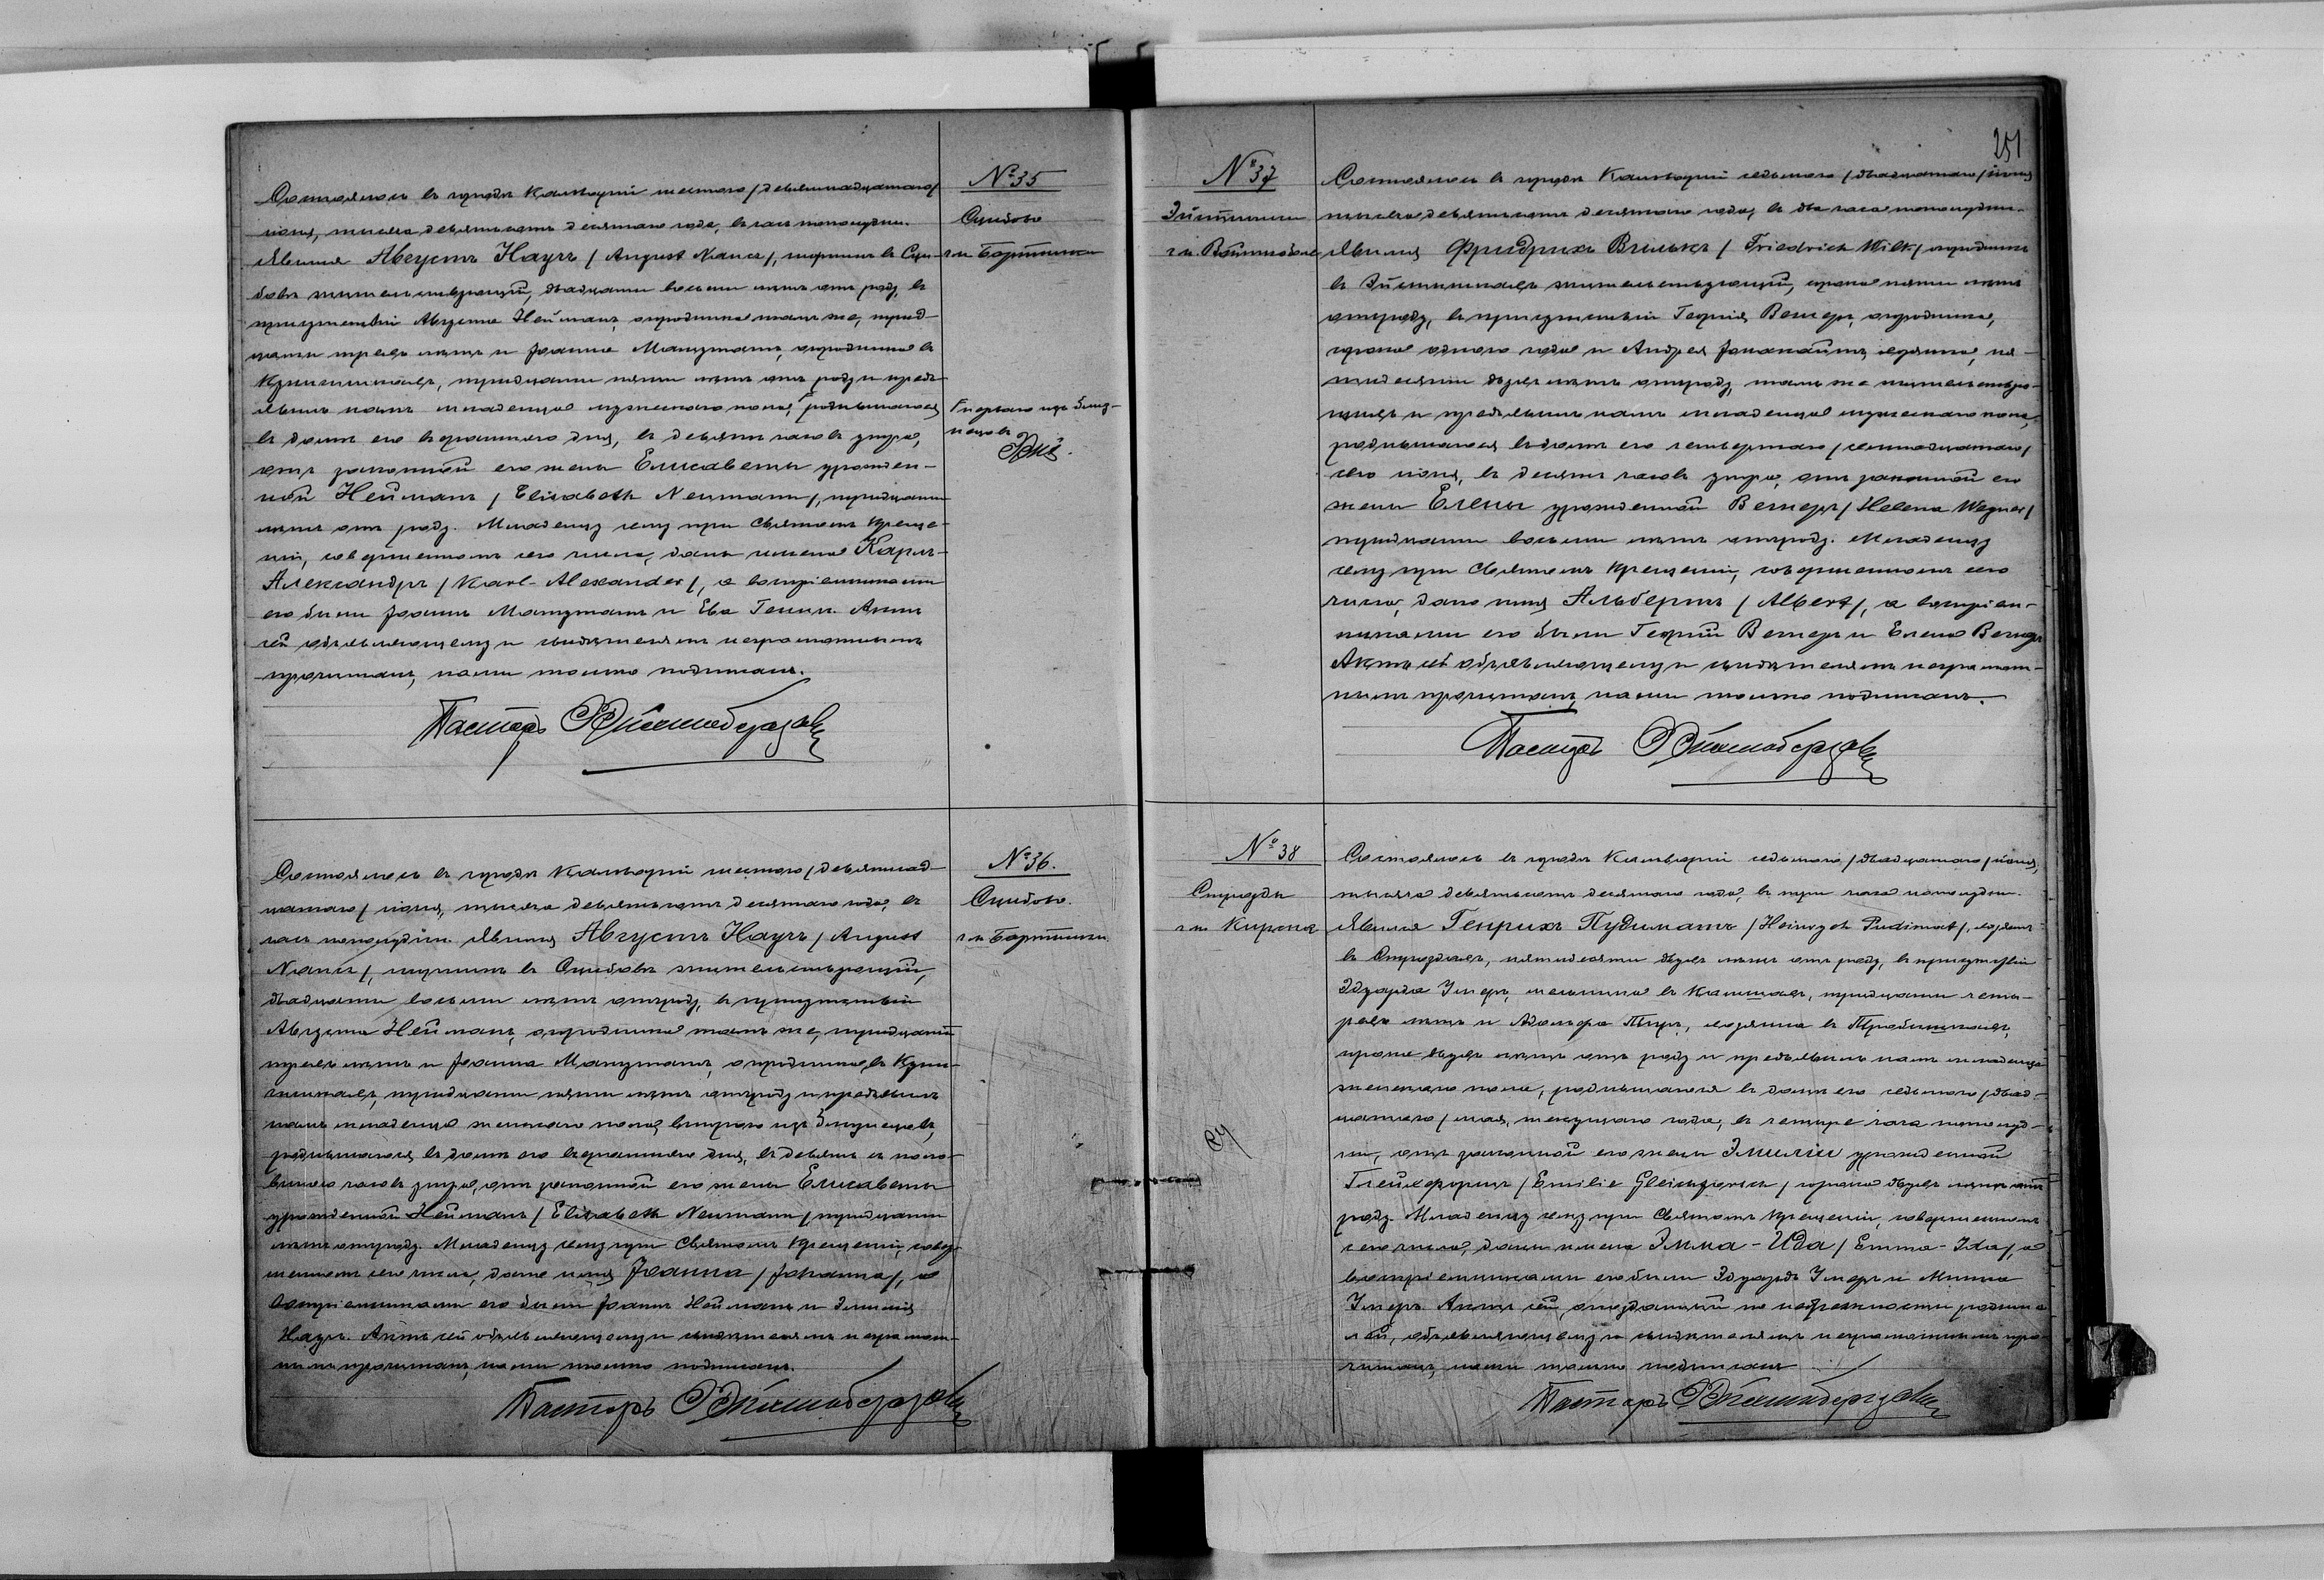 № 35
Сцибово
гм. Бартники
Состоялось въ городѣ Кальваріи шестого /девятнадцатаго/
іюня, тысяча девятьсотъ десятаго года, въ часъ пополудни.
Явился Августъ Науръ / August Nauer/, портной въ Сци-
бовѣ жительствующій, двадцати восьми лѣтъ отъ роду, въ
присутствіи Августа Нейманъ, огородника тамъ же, трид-
цати трехъ лѣтъ и Іоанна Манзманъ, огородника въ
тридцати пяти лѣтъ отъ роду и предъ-
явилъ намъ младенца мужескаго пола, родившагося
перваго изъ близ-
нецовъ
въ домѣ его вчерашняго дня, въ девять часовъ утра,
отъ законной его жены Елисаветы урожден-
ной Нейманъ / Elisabeth Neumann/, тридцати
лѣтъ отъ роду. Младенцу сему при Святомъ Креще-
ніи, совершенномъ сего числа, даны имена Карлъ-
Александръ / Karl-Alexander/, а воспріемниками
его были Іоаннъ Манзманъ и Ева Актъ
сей объявляющему и свидѣтелямъ неграмотнымъ
прочитанъ, нами только подписанъ.
Пасторъ
№ 36.
Сцибово.
гм. Бартники.
Состоялось въ городѣ Кальваріи шестого /девятнад-
цатаго/ іюня, тысяча девятьсотъ десятаго года, въ
часъ пополудни. Явился Августъ Науръ / August
Nauer/, портной въ Сцибовѣ жительствующій,
двадцати восьми лѣтъ отъ роду, въ присутствіи
Августа Нейманъ, огородника тамъ же, тридцати
трехъ лѣтъ и Іоанна Манзманъ, огородника въ
тридцати пяти лѣтъ отъ роду и предъявилъ
намъ младенца женскаго пола, второго изъ близнецовъ,
родившагося въ домѣ его вчерашняго дня, въ девять съ поло-
виною часовъ утра, отъ законной его жены Елисаветы
урожденной Нейманъ / Elisabeth Neumann/ тридцати
лѣтъ отъ роду. Младенцу сему при Святомъ Крещеніи, совер-
шенномъ сего числа, дано имя Іоанна / Johanna/, а
воспріемниками его были Іоаннъ Нейманъ и Эмилія
Науръ. Актъ сей объявляющему и свидѣтелямъ неграмот-
нымъ прочитанъ, нами только подписанъ.
Пасторъ
251
№ 37
Состоялось въ городѣ Кальваріи седьмого /двадцатаго/ іюня
тысяча девятьсотъ десятаго года, въ два часа пополудни.
Явился Фридрихъ Вилькъ / Friedrich Wilk/ огородникъ
въ жительствующій, сорока пяти лѣтъ
отъ роду, въ присутствіи Георгія Вегнеръ, огородника,
сорока одного года и Андрея хозяина, пя-
тидесяти двухъ лѣтъ отъ роду, тамъ же жительствую-
щихъ и предъявилъ намъ младенца мужескаго пола,
родившагося въ домѣ его четвертаго /семнадцатаго/
сего іюня, въ десять часовъ утра, отъ законной его
жены Елены урожденной Вегнеръ / Helena Wegner/
тридцати восьми лѣтъ отъ роду. Младенцу
сему при Святомъ Крещеніи, совершенномъ сего
числа, дано имя Альбертъ / Albert/, а воспріем-
никами его были Георгій Вегнеръ и Елена Вегнеръ
Актъ сей объявляющему и свидѣтелямъ неграмот-
нымъ прочитанъ, нами только подписанъ.
Пасторъ
№ 38
гм. Кирсна
Состоялось въ городѣ Кальваріи седьмого /двадцатаго/ іюня,
тысяча девятьсотъ десятаго года, въ три часа пополудни.
Явился Генрихъ Пудиматъ / Heinrich Pudimat/, хозяинъ
въ пятидесяти двухъ лѣтъ отъ роду, въ присутствіи
Эдуарда мельника въ тридцати четы-
рехъ лѣтъ и Адольфа хозяина въ
сорока двухъ лѣтъ отъ роду и предъявилъ намъ младенца
женскаго пола, родившагося въ домѣ его седьмого /двад-
цатаго/ мая, текущаго года, въ четыре часа пополуд-
ни, отъ законной его жены Эмиліи урожденной
сорока двухъ лѣтъ отъ
роду. Младенцу сему при Святомъ Крещеніи, совершенномъ
сего числа, даны имена Эмма-Ида / Emma-Ida/, а
воспріемниками его были Эдуардъ и Минна
Актъ сей, опоздавшій по небрежности родите-
лей, объявляющему и свидѣтелямъ неграмотнымъ про-
читанъ, нами только подписанъ
Пасторъ